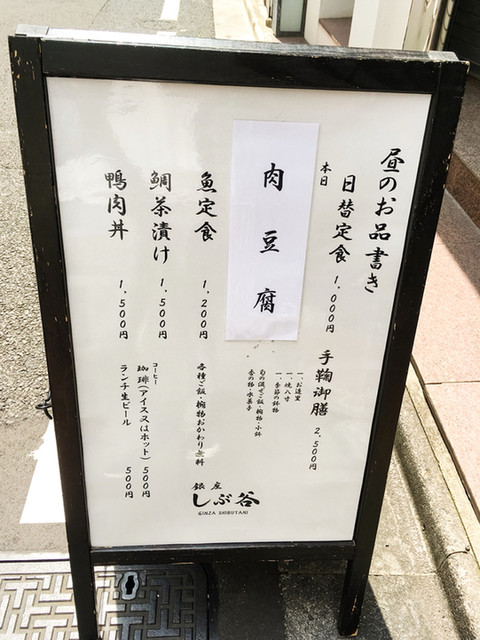 昼のお品書き
本日
日替定食 1,000円
肉豆腐
魚定食 1,200円
鯛茶漬け 1,500円
鴨肉丼 1,500円
手鞠御膳 2,500円
一、お造里
一、焼八寸
一、季節の鉢物
旬の混ぜご飯・椀物・小鉢
香の物・水菓子
各種ご飯・椀物おかわり無料
コーヒー
珈琲(アイス又はホット) 500円
ランチ生ビール 500円
銀座
しぶ谷
GINZA SHIBUTANI